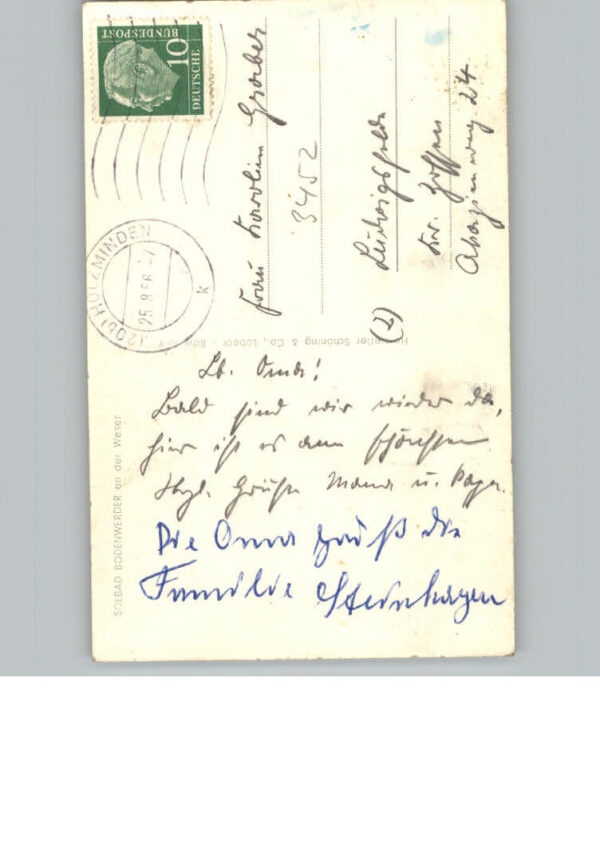 DEUTSCHE
BUNDESPOST
10
(20b) HOLZMINDEN
25.8.56
k
Frau Karoline Graber
3452
(2)
Ludwigsfelde
Kr. Zossen
weg 24
Schöning & Co., Lübeck
Lb. Oma!
Bald sind wir wieder da,
hier ist es am schönsten
Hrzl. Grüße Mama u. Papa.
Die Oma grüß die
Familie Steinhagen
SOLBAD BODENWERDER an der Weser